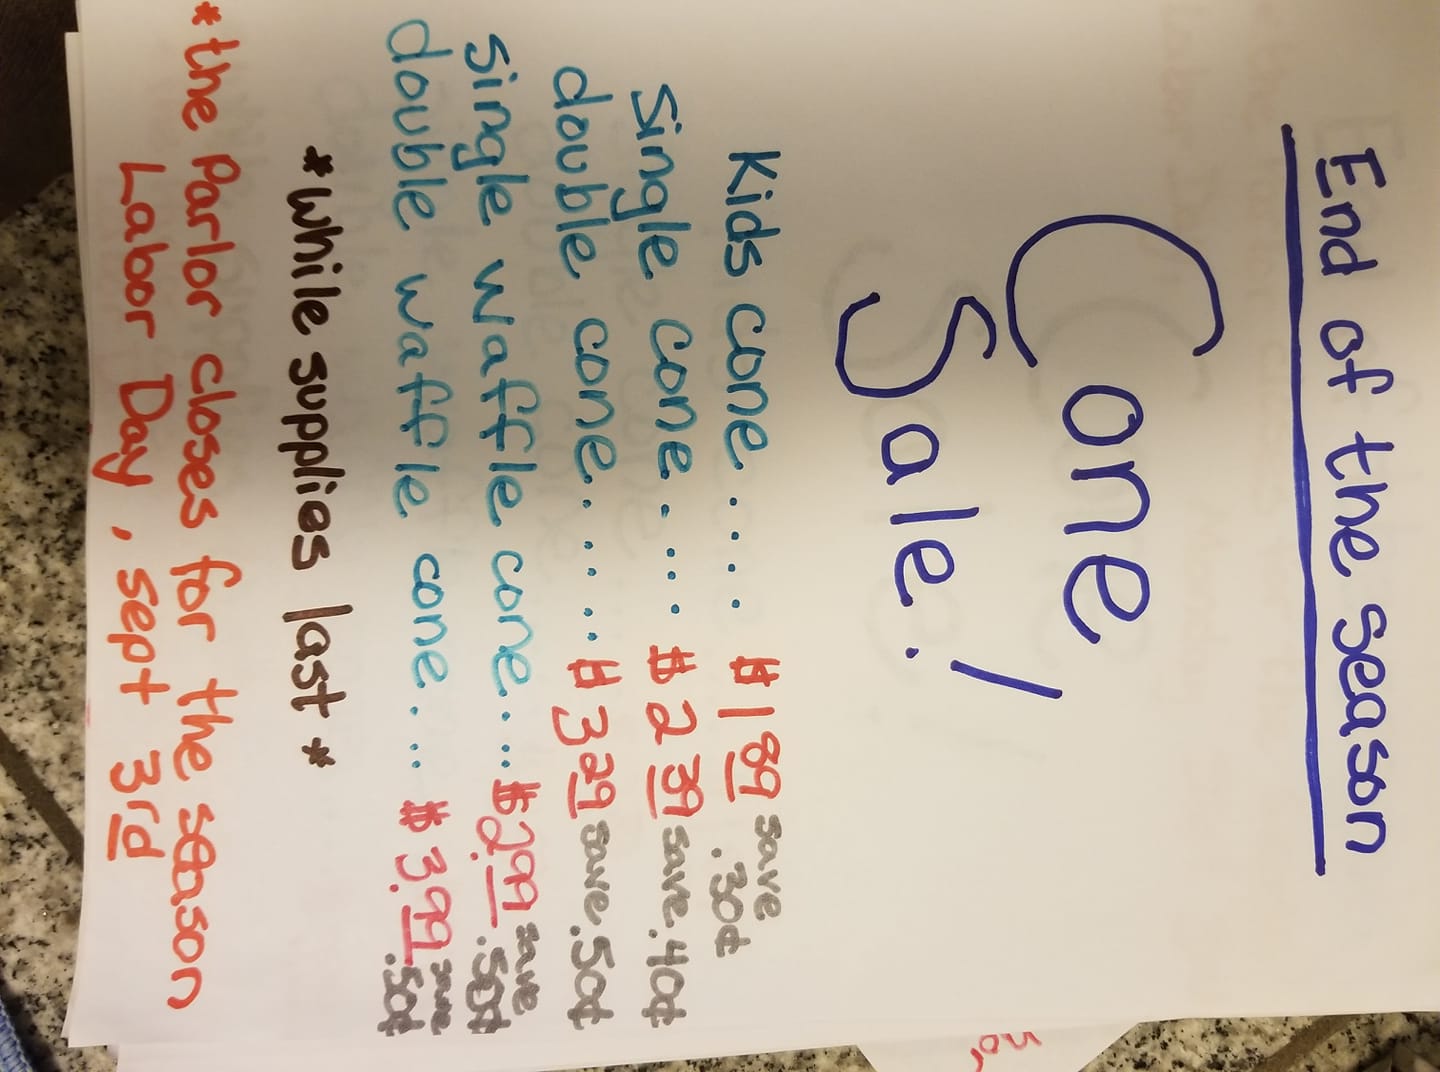 End of the season
Cone
Sale!
Kids cone .... $1 89 save .30¢
Single cone . ... $2 39 save .40¢
double cone..... $3 29 save .50¢
Single waffle cone.... $2.99 save .50¢
double waffle cone.... $3.99 save .50¢
*While supplies last *
*the Parlor closes for the season
Labor Day, sept 3rd